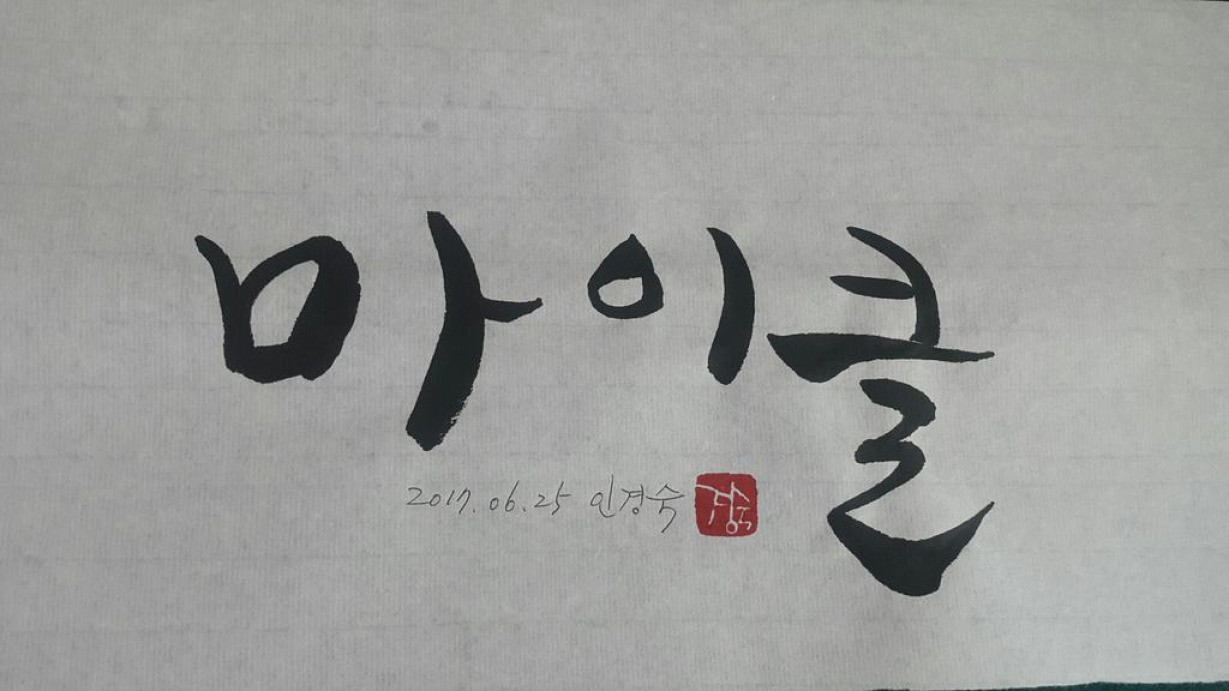 마이클
2017.06.25 인경숙
경숙